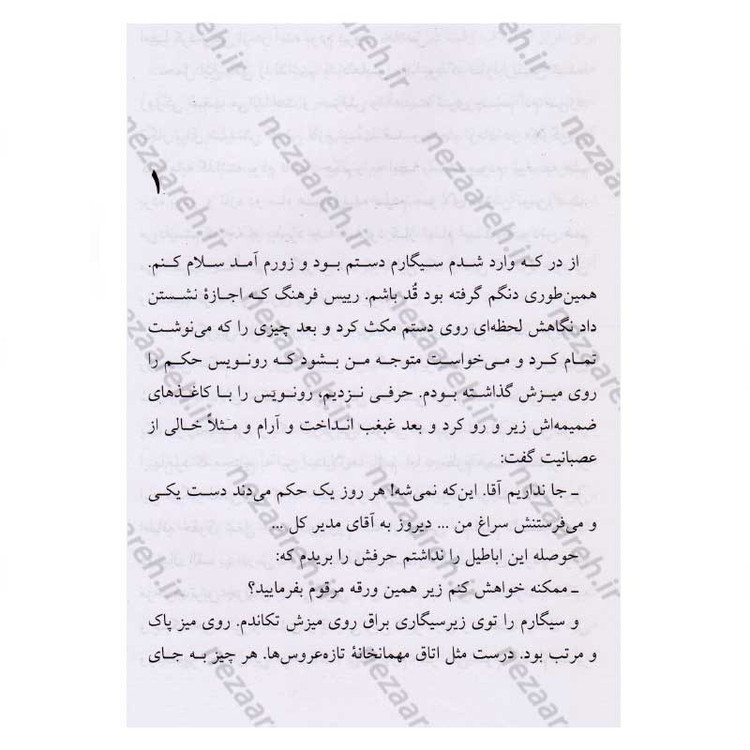 ۱
از در که وارد شدم سیگارم دستم بود و زورم آمد سلام کنم.
همین‌طوری دنگم گرفته بود قُد باشم. رییس فرهنگ که اجازهٔ نشستن
داد نگاهش لحظه‌ای روی دستم مکث کرد و بعد چیزی را که می‌نوشت
تمام کرد و می‌خواست متوجه من بشود که رونویس حکم را
روی میزش گذاشته بودم. حرفی نزدیم، رونویس را با کاغذهای
ضمیمه‌اش زیر و رو کرد و بعد غبغب انداخت و آرام و مثلاً خالی از
عصبانیت گفت:
ـ جا نداریم آقا. این‌که نمی‌شه! هر روز یک حکم می‌دند دست یکی
و می‌فرستنش سراغ من ... دیروز به آقای مدیر کل ...
حوصله این اباطیل را نداشتم حرفش را بریدم که:
ـ ممکنه خواهش کنم زیر همین ورقه مرقوم بفرمایید؟
و سیگارم را توی زیرسیگاری براق روی میزش تکاندم. روی میز پاک
و مرتب بود. درست مثل اتاق مهمانخانهٔ تازه‌عروس‌ها. هر چیز به جای
nezaareh.ir